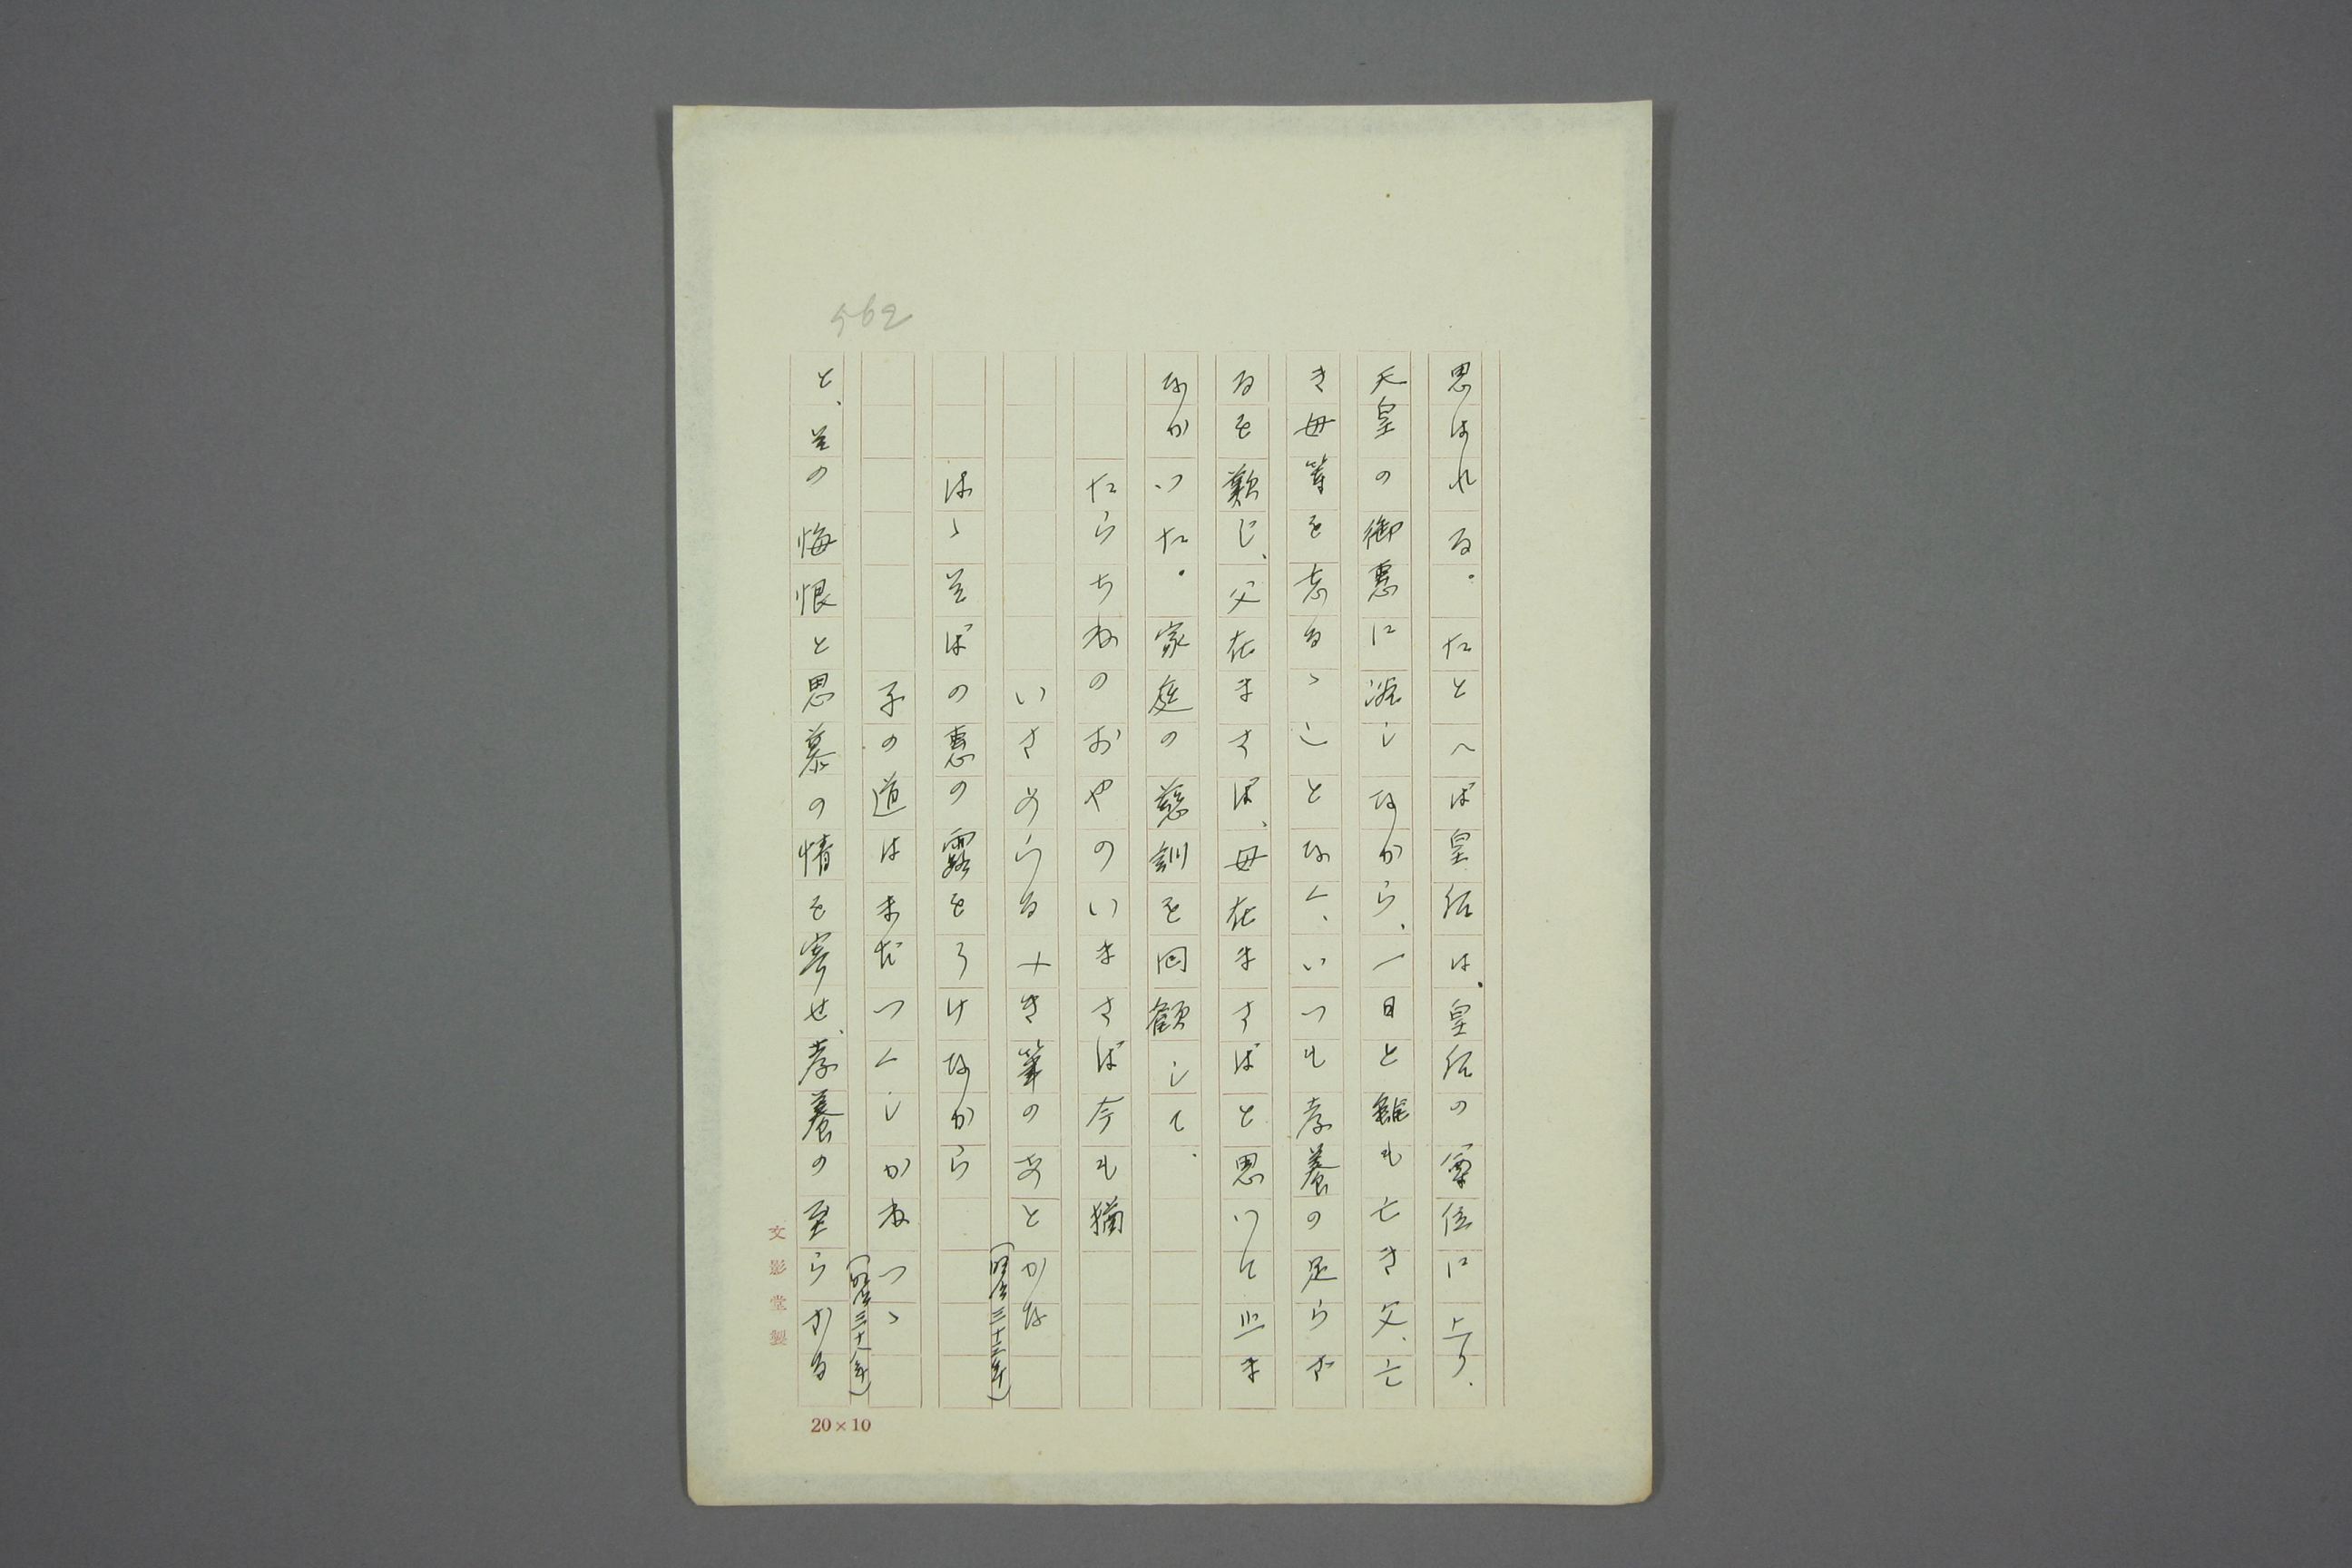 562
思はれる。たとへば皇后は、皇后の尊位に上り、
天皇の御恵に浴しながら、一日と雖も亡き父、亡
き母等を忘るゝことなく、いつも孝養の足らざ
るを歎じ、父在まさば、母在まさばと思いて止ま
なかった。家庭の慈訓を回顧して、
たらちねのおやのいまさば今も猶
いさめらるべき筆のあとかな
(明治三十二年)
はゝそばの恵の露をうけながら
子の道はまだつくしかねつゝ
(明治三十八年)
と、その悔恨と思慕の情を寄せ、孝養の至らざる
文影堂製
20×10